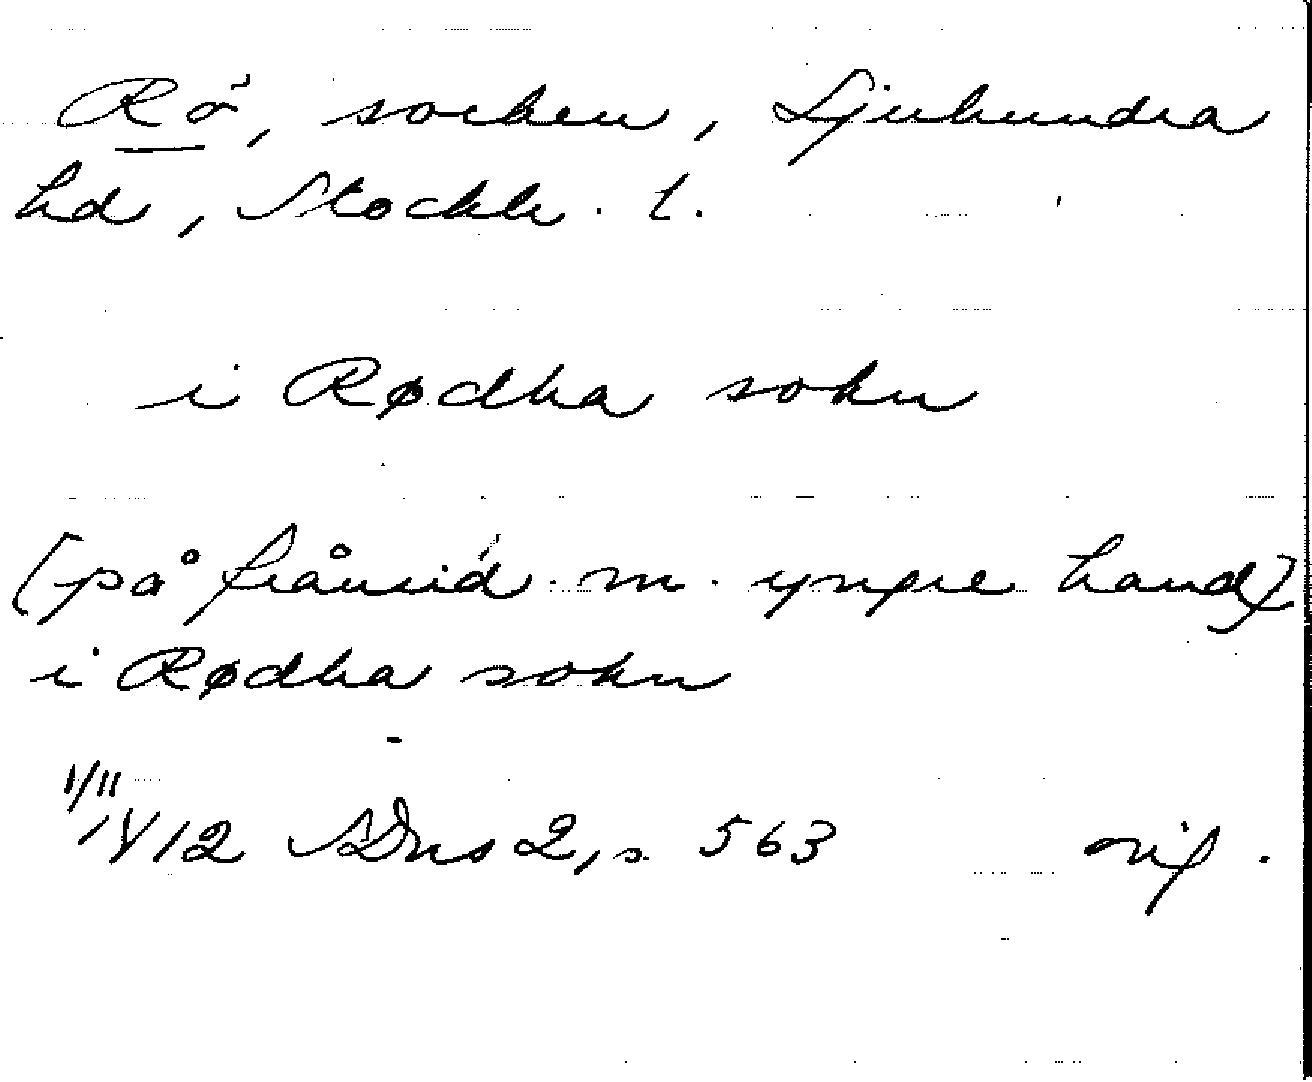 Rö, socken, Sjuhundra
hd, Stockh. l.
i Rødha sokn
[på frånsid. m. yngre hand]
i Rødha sokn
1/11
1412 SDns 2, s. 563 orig.